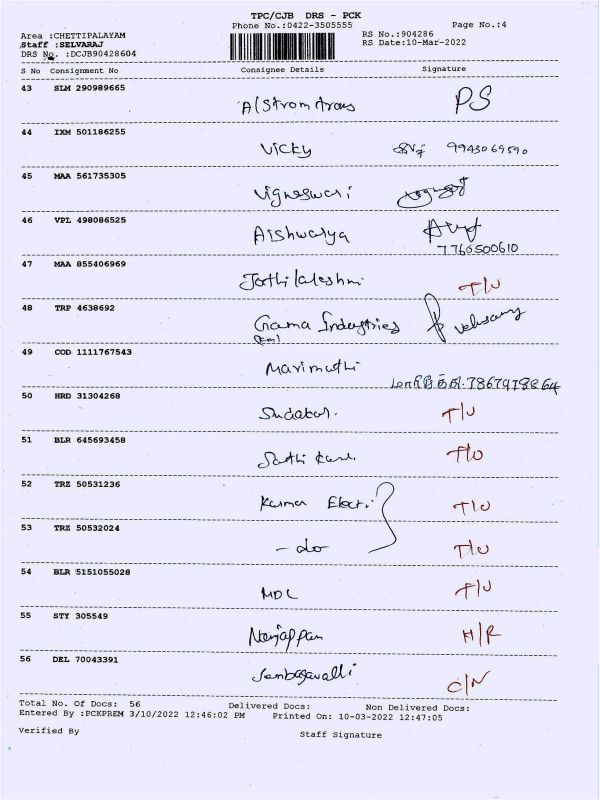 TPC/CJB DRS - PCK
Phone No.:0422-3505555 Page No.:4
Area :CHETTIPALAYAM RS No.:904286
Staff :SELVARAJ RS Date:10-Mar-2022
DRS No. :DCJB90428604
S No Consignment No Consignee Details Signature
43 SLM 290989665 Alstrom trans PS
44 IXM 501186255 Vicky 9943069590
45 MAA 561735305 Vigneswari
46 VPL 498086525 Aishwarya
7760500610
47 MAA 855406969 Jothi lakshmi T/U
48 TRP 4638692 Gama Industries
49 COD 1111767543 Marimuthi
50 HRD 31304268 Sudakar. T/U
51 BLR 645693458 T/U
52 TRZ 50531236 Kumar Electri T/U
53 TRZ 50532024 - do T/U
54 BLR 5151055028 MDL T/U
55 STY 305549 Nanjappan H/R
56 DEL 70043391 C/N
Total No. Of Docs: 56 Delivered Docs: Non Delivered Docs:
Entered By :PCKPREM 3/10/2022 12:46:02 PM Printed On: 10-03-2022 12:47:05
Verified By Staff Signature